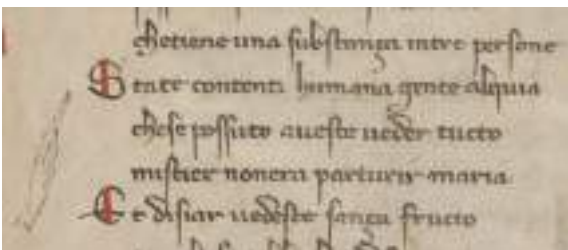 che tiene una substanza intre persone
State contenti humana gente al quia
che se possuto aueste ueder tucto
mistier non era parturir maria
E disiar uedeste sanza fructo